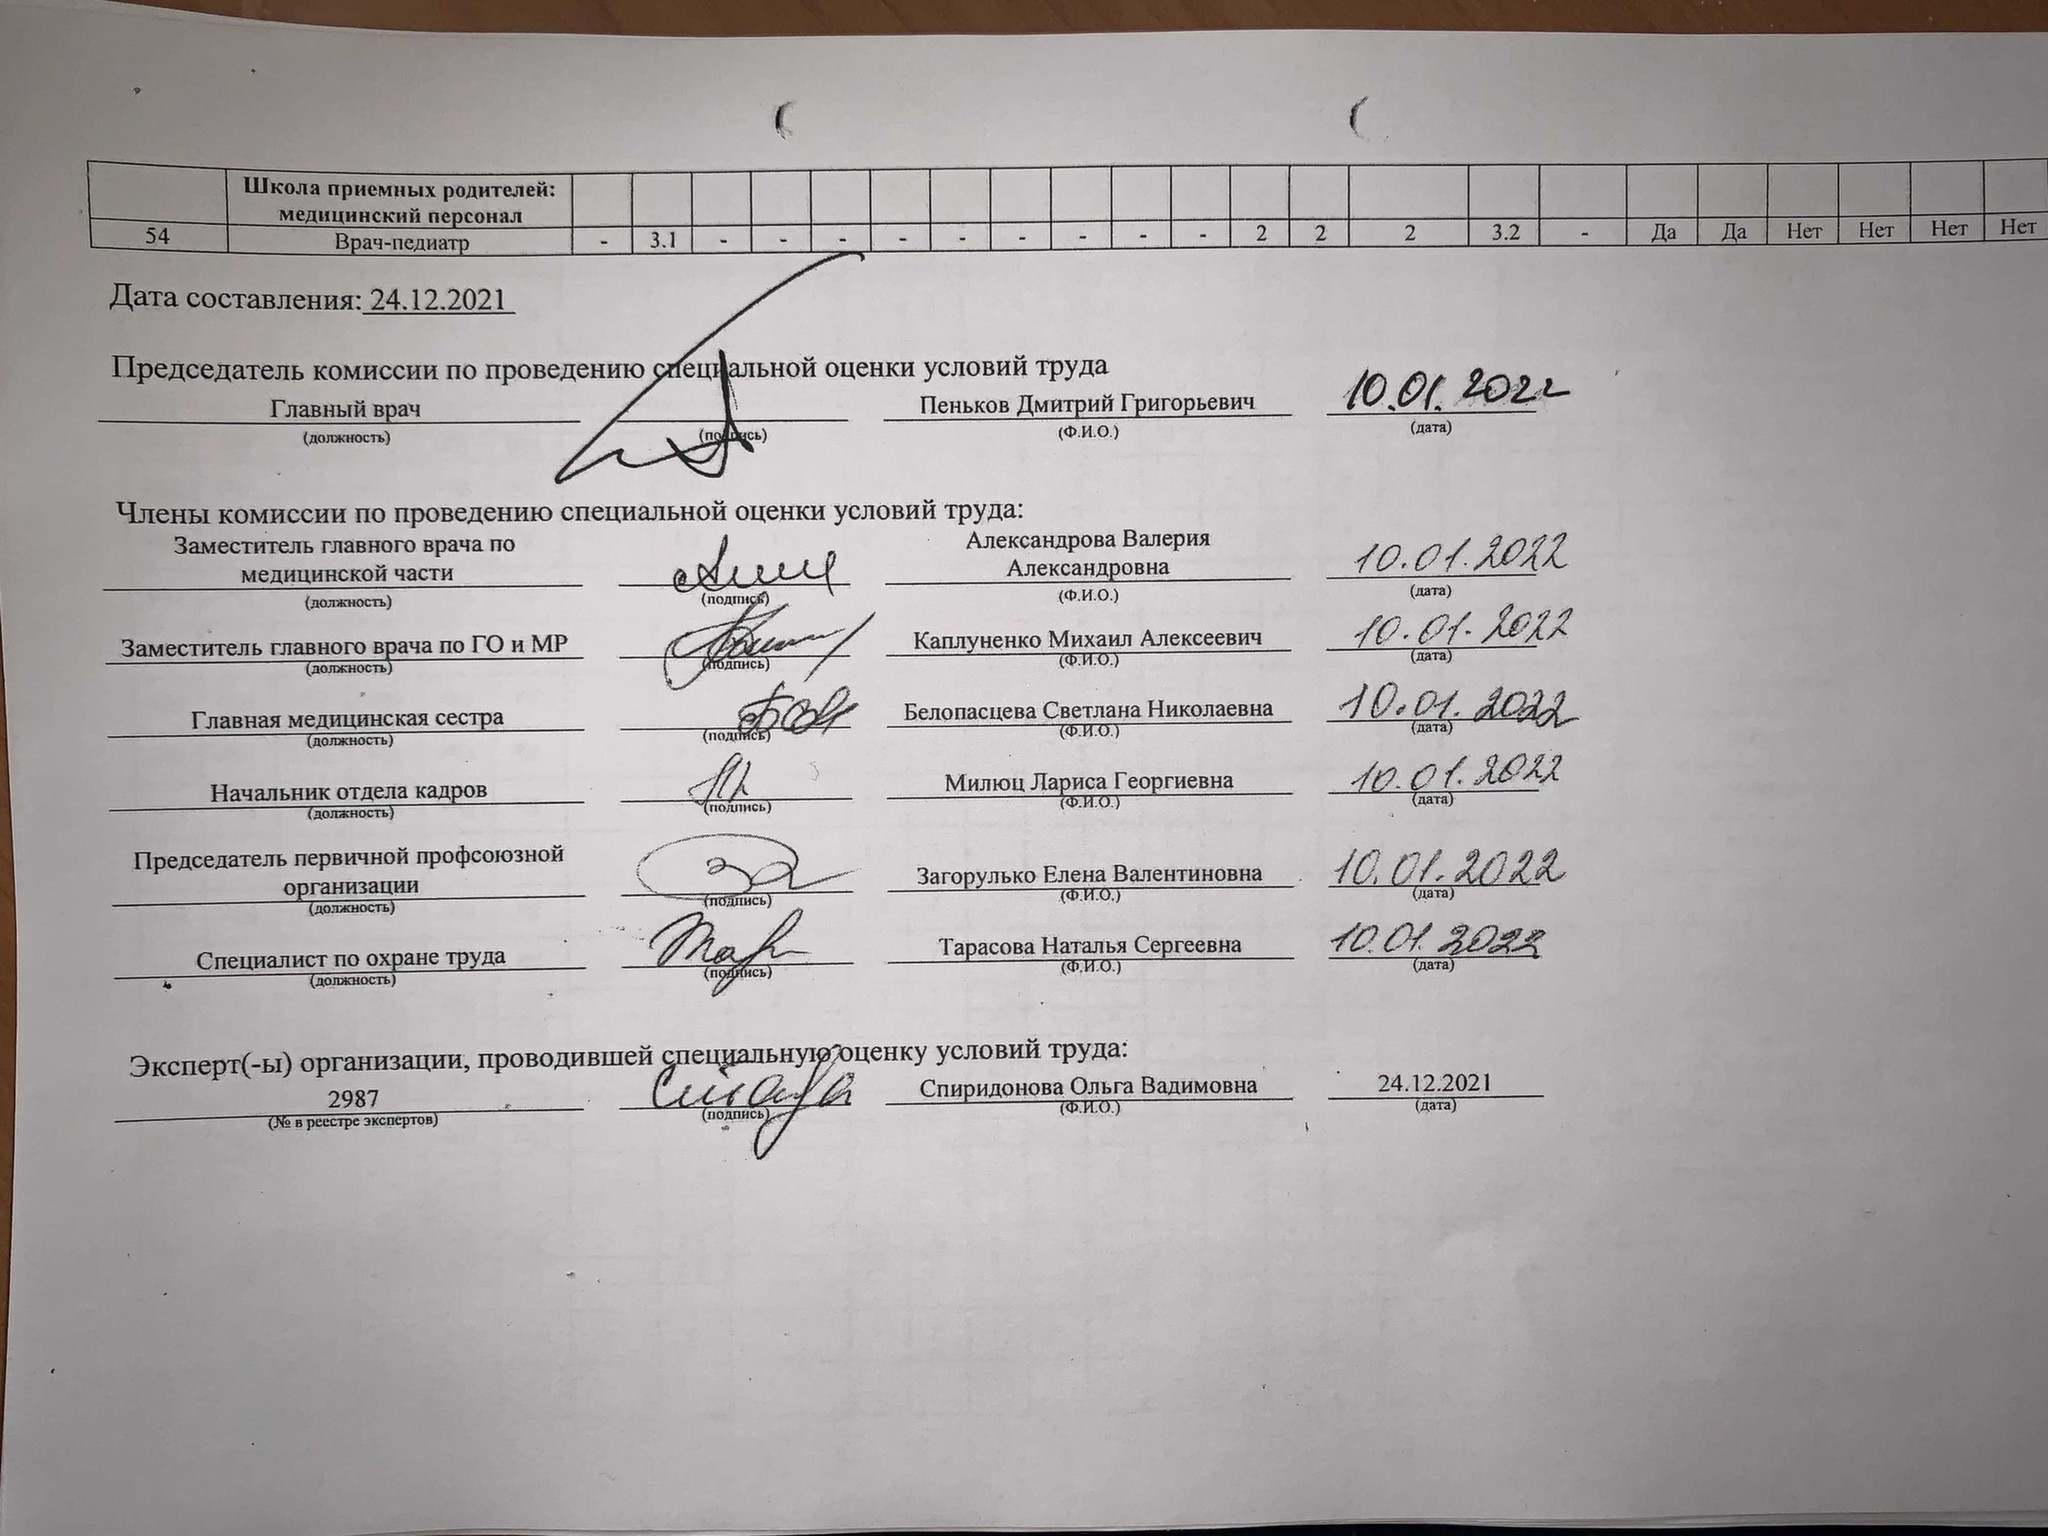 Школа приемных родителей:
медицинский персонал
54 Врач-педиатр - 3.1 - - - - - - - - - 2 2 2 3.2 - Да Да Нет Нет Нет Нет
Дата составления: 24.12.2021
Председатель комиссии по проведению специальной оценки условий труда
Главный врач Пеньков Дмитрий Григорьевич 10.01.2022
(должность) (подпись) (Ф.И.О.) (дата)
Члены комиссии по проведению специальной оценки условий труда:
Заместитель главного врача по Александрова Валерия
медицинской части Александровна 10.01.2022
(должность) (подпись) (Ф.И.О.) (дата)
Заместитель главного врача по ГО и МР Каплуненко Михаил Алексеевич 10.01.2022
(должность) (подпись) (Ф.И.О.) (дата)
Главная медицинская сестра Белопасцева Светлана Николаевна 10.01.2022
(должность) (подпись) (Ф.И.О.) (дата)
Начальник отдела кадров Милюц Лариса Георгиевна 10.01.2022
(должность) (подпись) (Ф.И.О.) (дата)
Председатель первичной профсоюзной
организации Загорулько Елена Валентиновна 10.01.2022
(должность) (подпись) (Ф.И.О.) (дата)
Специалист по охране труда Тарасова Наталья Сергеевна 10.01.2022
(должность) (подпись) (Ф.И.О.) (дата)
Эксперт(-ы) организации, проводившей специальную оценку условий труда:
2987 Спиридонова Ольга Вадимовна 24.12.2021
(№ в реестре экспертов) (подпись) (Ф.И.О.) (дата)